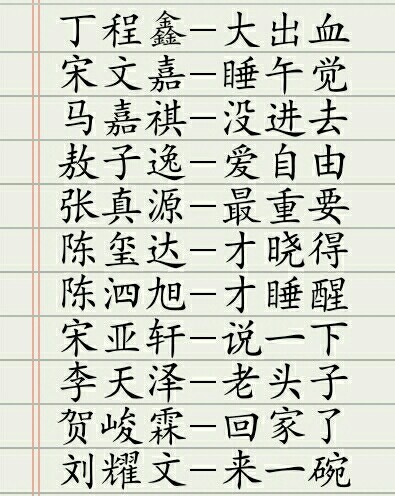 丁程鑫—大出血
宋文嘉—睡午觉
马嘉祺—没进去
敖子逸—爱自由
张真源—最重要
陈玺达—才晓得
陈泗旭—才睡醒
宋亚轩—说一下
李天泽—老头子
贺峻霖—回家了
刘耀文—来一碗